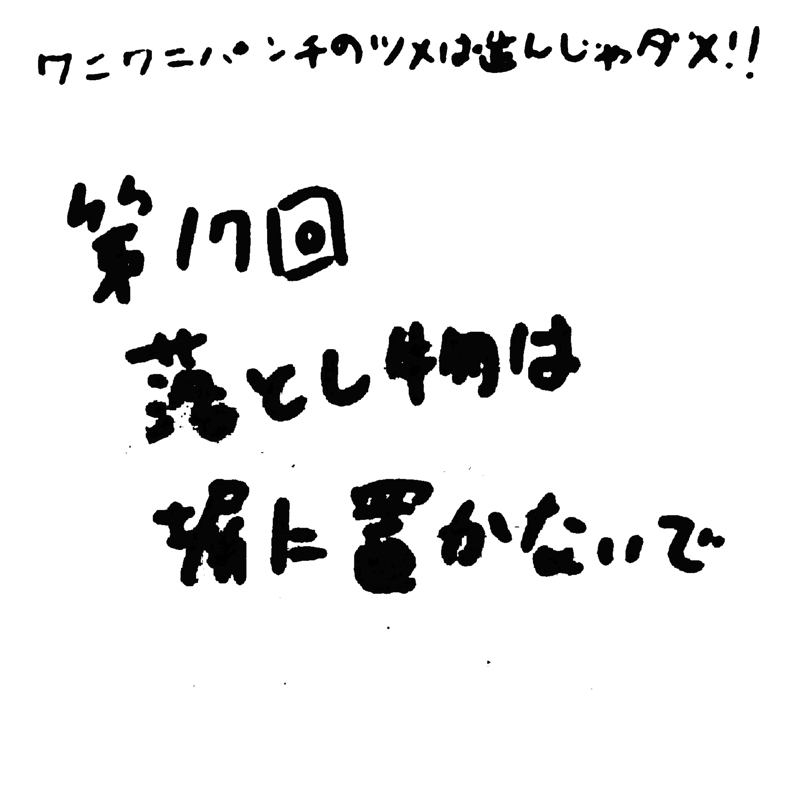 ワニワニパンチのツメは盗んじゃダメ!!
第17回
落とし物は
塀に置かないで